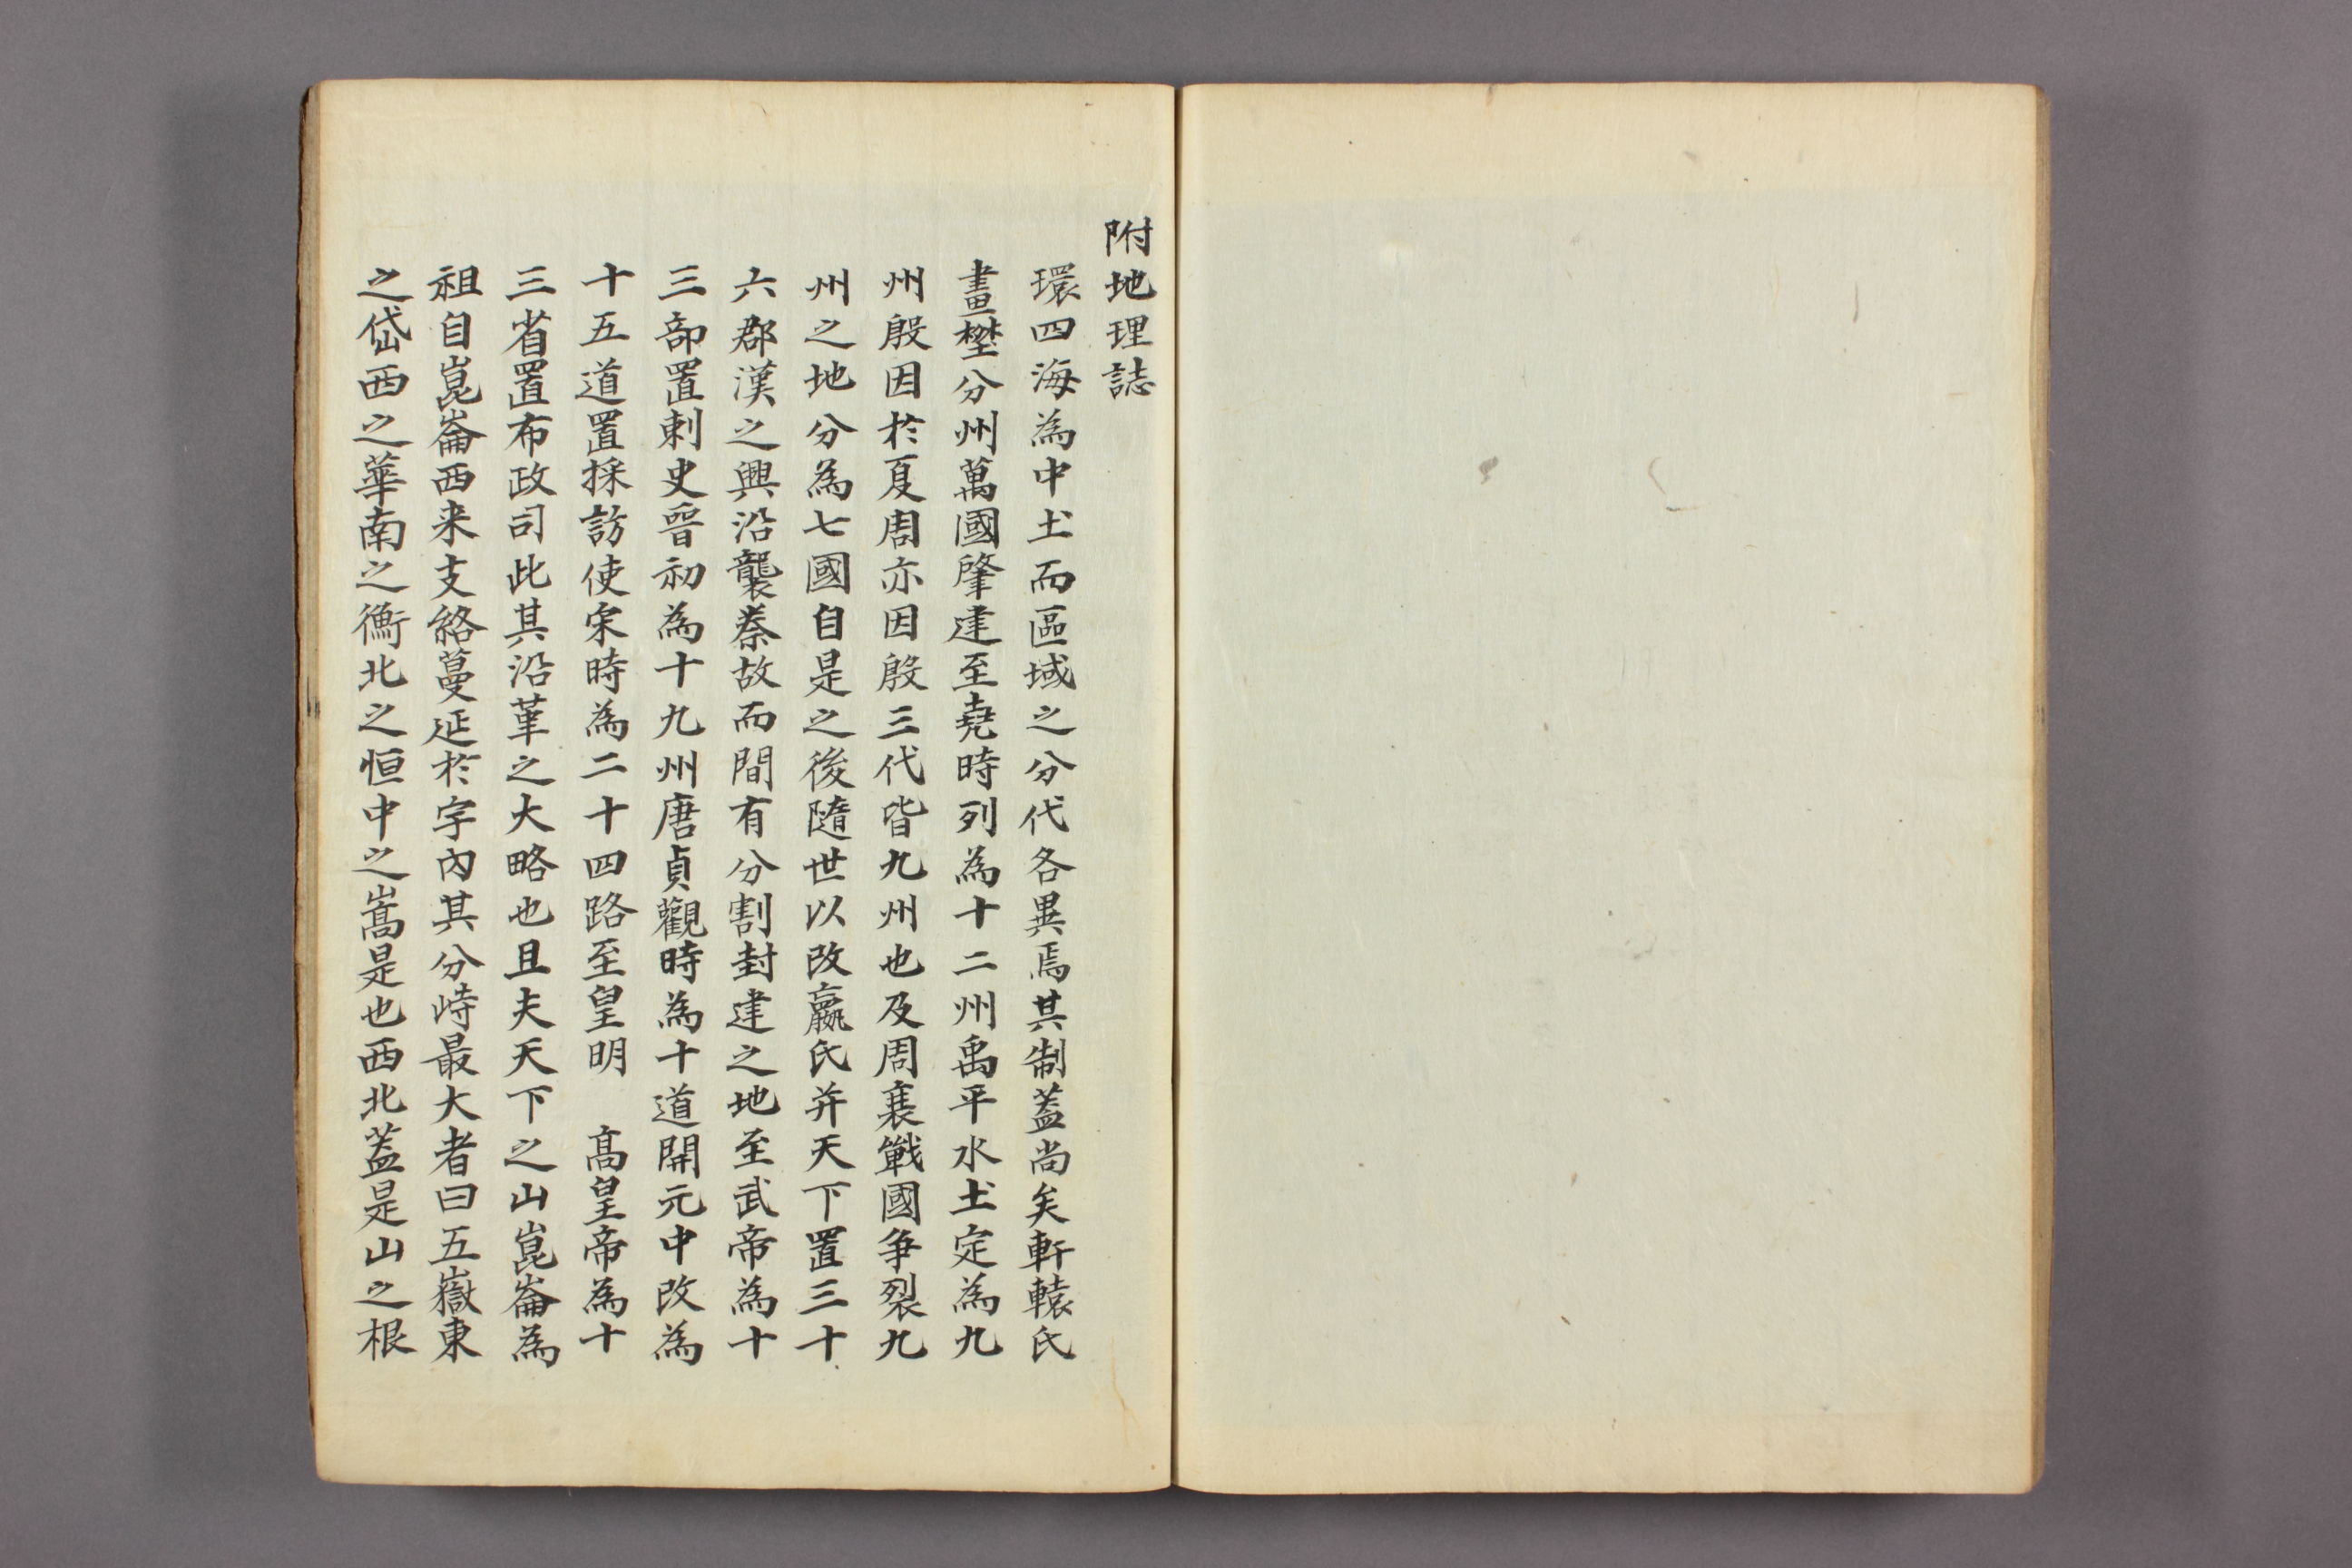 附地理誌
環四海為中土而區域之分代各異焉其制盖尚矣軒轅氏
畫壄分州萬國肇建至堯時列為十二州禹平水土定為九
州殷因於夏周亦因殷三代皆九州也及周衰戰國爭裂九
州之地分為七國自是之後隨世以改嬴氏并天下置三十
六郡漢之興沿襲秦故而間有分割封建之地至武帝為十
三部置刺史晉初為十九州唐貞觀時為十道開元中改為
十五道置採訪使宋時為二十四路至皇明　高皇帝為十
三省置布政司此其沿革之大略也且夫天下之山崑崙為
祖自崑崙西来支絡蔓延於宇內其分峙最大者曰五嶽東
之岱西之華南之衡北之恒中之嵩是也西北盖是山之根